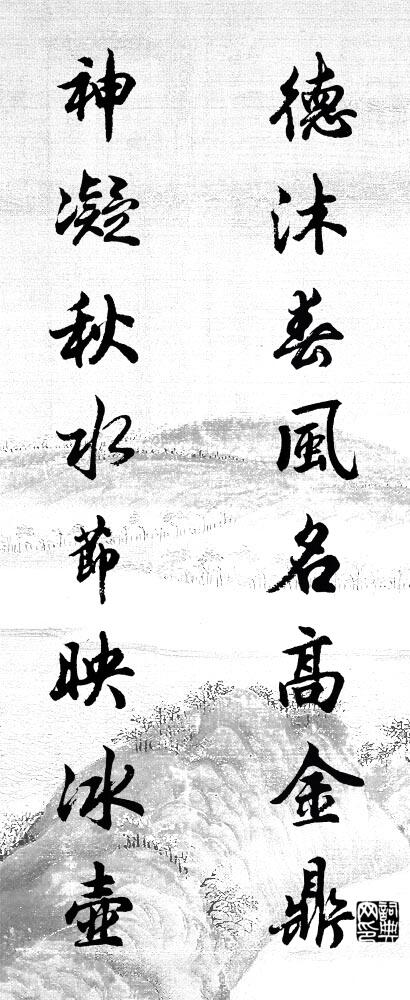 德沐春風名高金鼎
神凝秋水節映冰壺
詞典网印